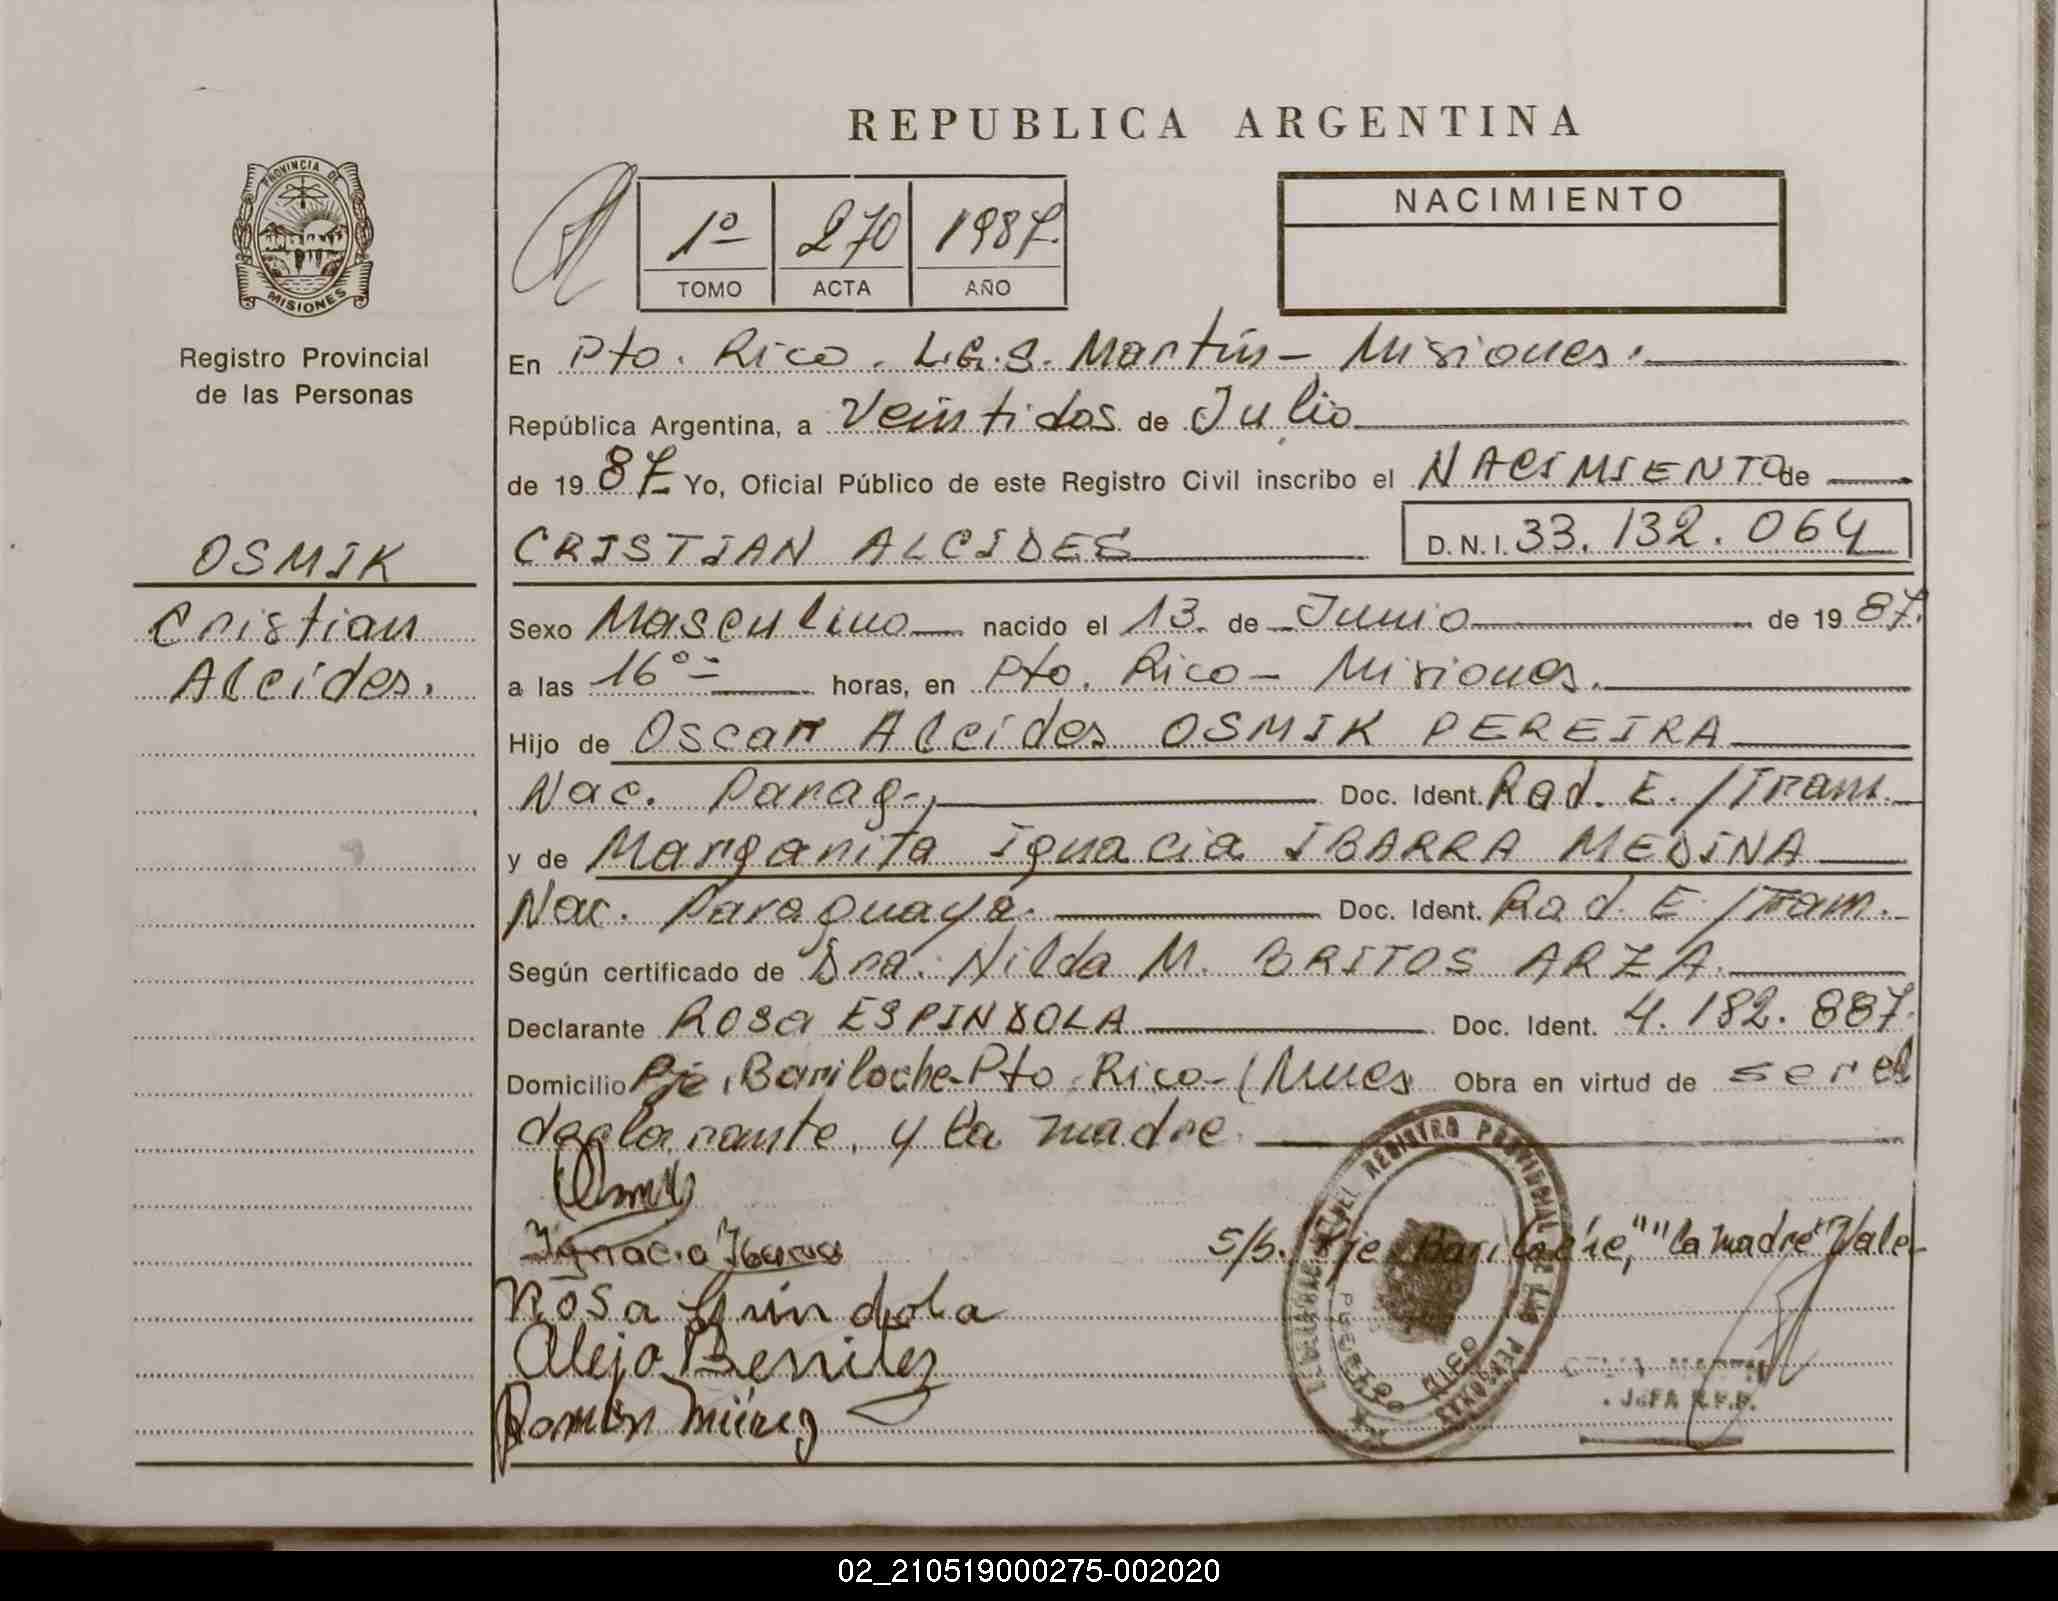 REPUBLICA ARGENTINA
PROVINCIA DE
MISIONES
Registro Provincial
de las Personas
1º 270 1987.
TOMO ACTA AÑO
NACIMIENTO
En Pto. Rico. L.G.S. Martín - Misiones.
República Argentina, a Veintidos de Julio
de 1987 Yo, Oficial Público de este Registro Civil inscribo el NACIMIENTO de
CRISTIAN ALCIDES D.N.I. 33.132.064
OSMIK
Cristian
Alcides.
Sexo Masculino nacido el 13 de Junio de 1987.
a las 16º= horas, en Pto. Rico - Misiones.
Hijo de Oscar Alcides OSMIK PEREIRA
Nac. Parag-, Doc. Ident. Rad. E. /Tram.
y de Margarita Ignacia IBARRA MEDINA
Nac. Paraguaya. Doc. Ident. Rad. E. /Tram.
Según certificado de Dra. Nilda M. BRITOS ARZA.
Declarante ROSA ESPINDOLA Doc. Ident. 4.182.887.
Domicilio Pje. Bariloche-Pto Rico-(Mnes Obra en virtud de ser el
declarante, y la madre.
S/b. "Pje Bariloche," "la madre" Vale-
Rosa
Alejo Benitez
Ramón
REGISTRO PROVINCIAL DE LAS PERSONAS
PUERTO RICO
JEFA R.P.P.
02_210519000275-002020